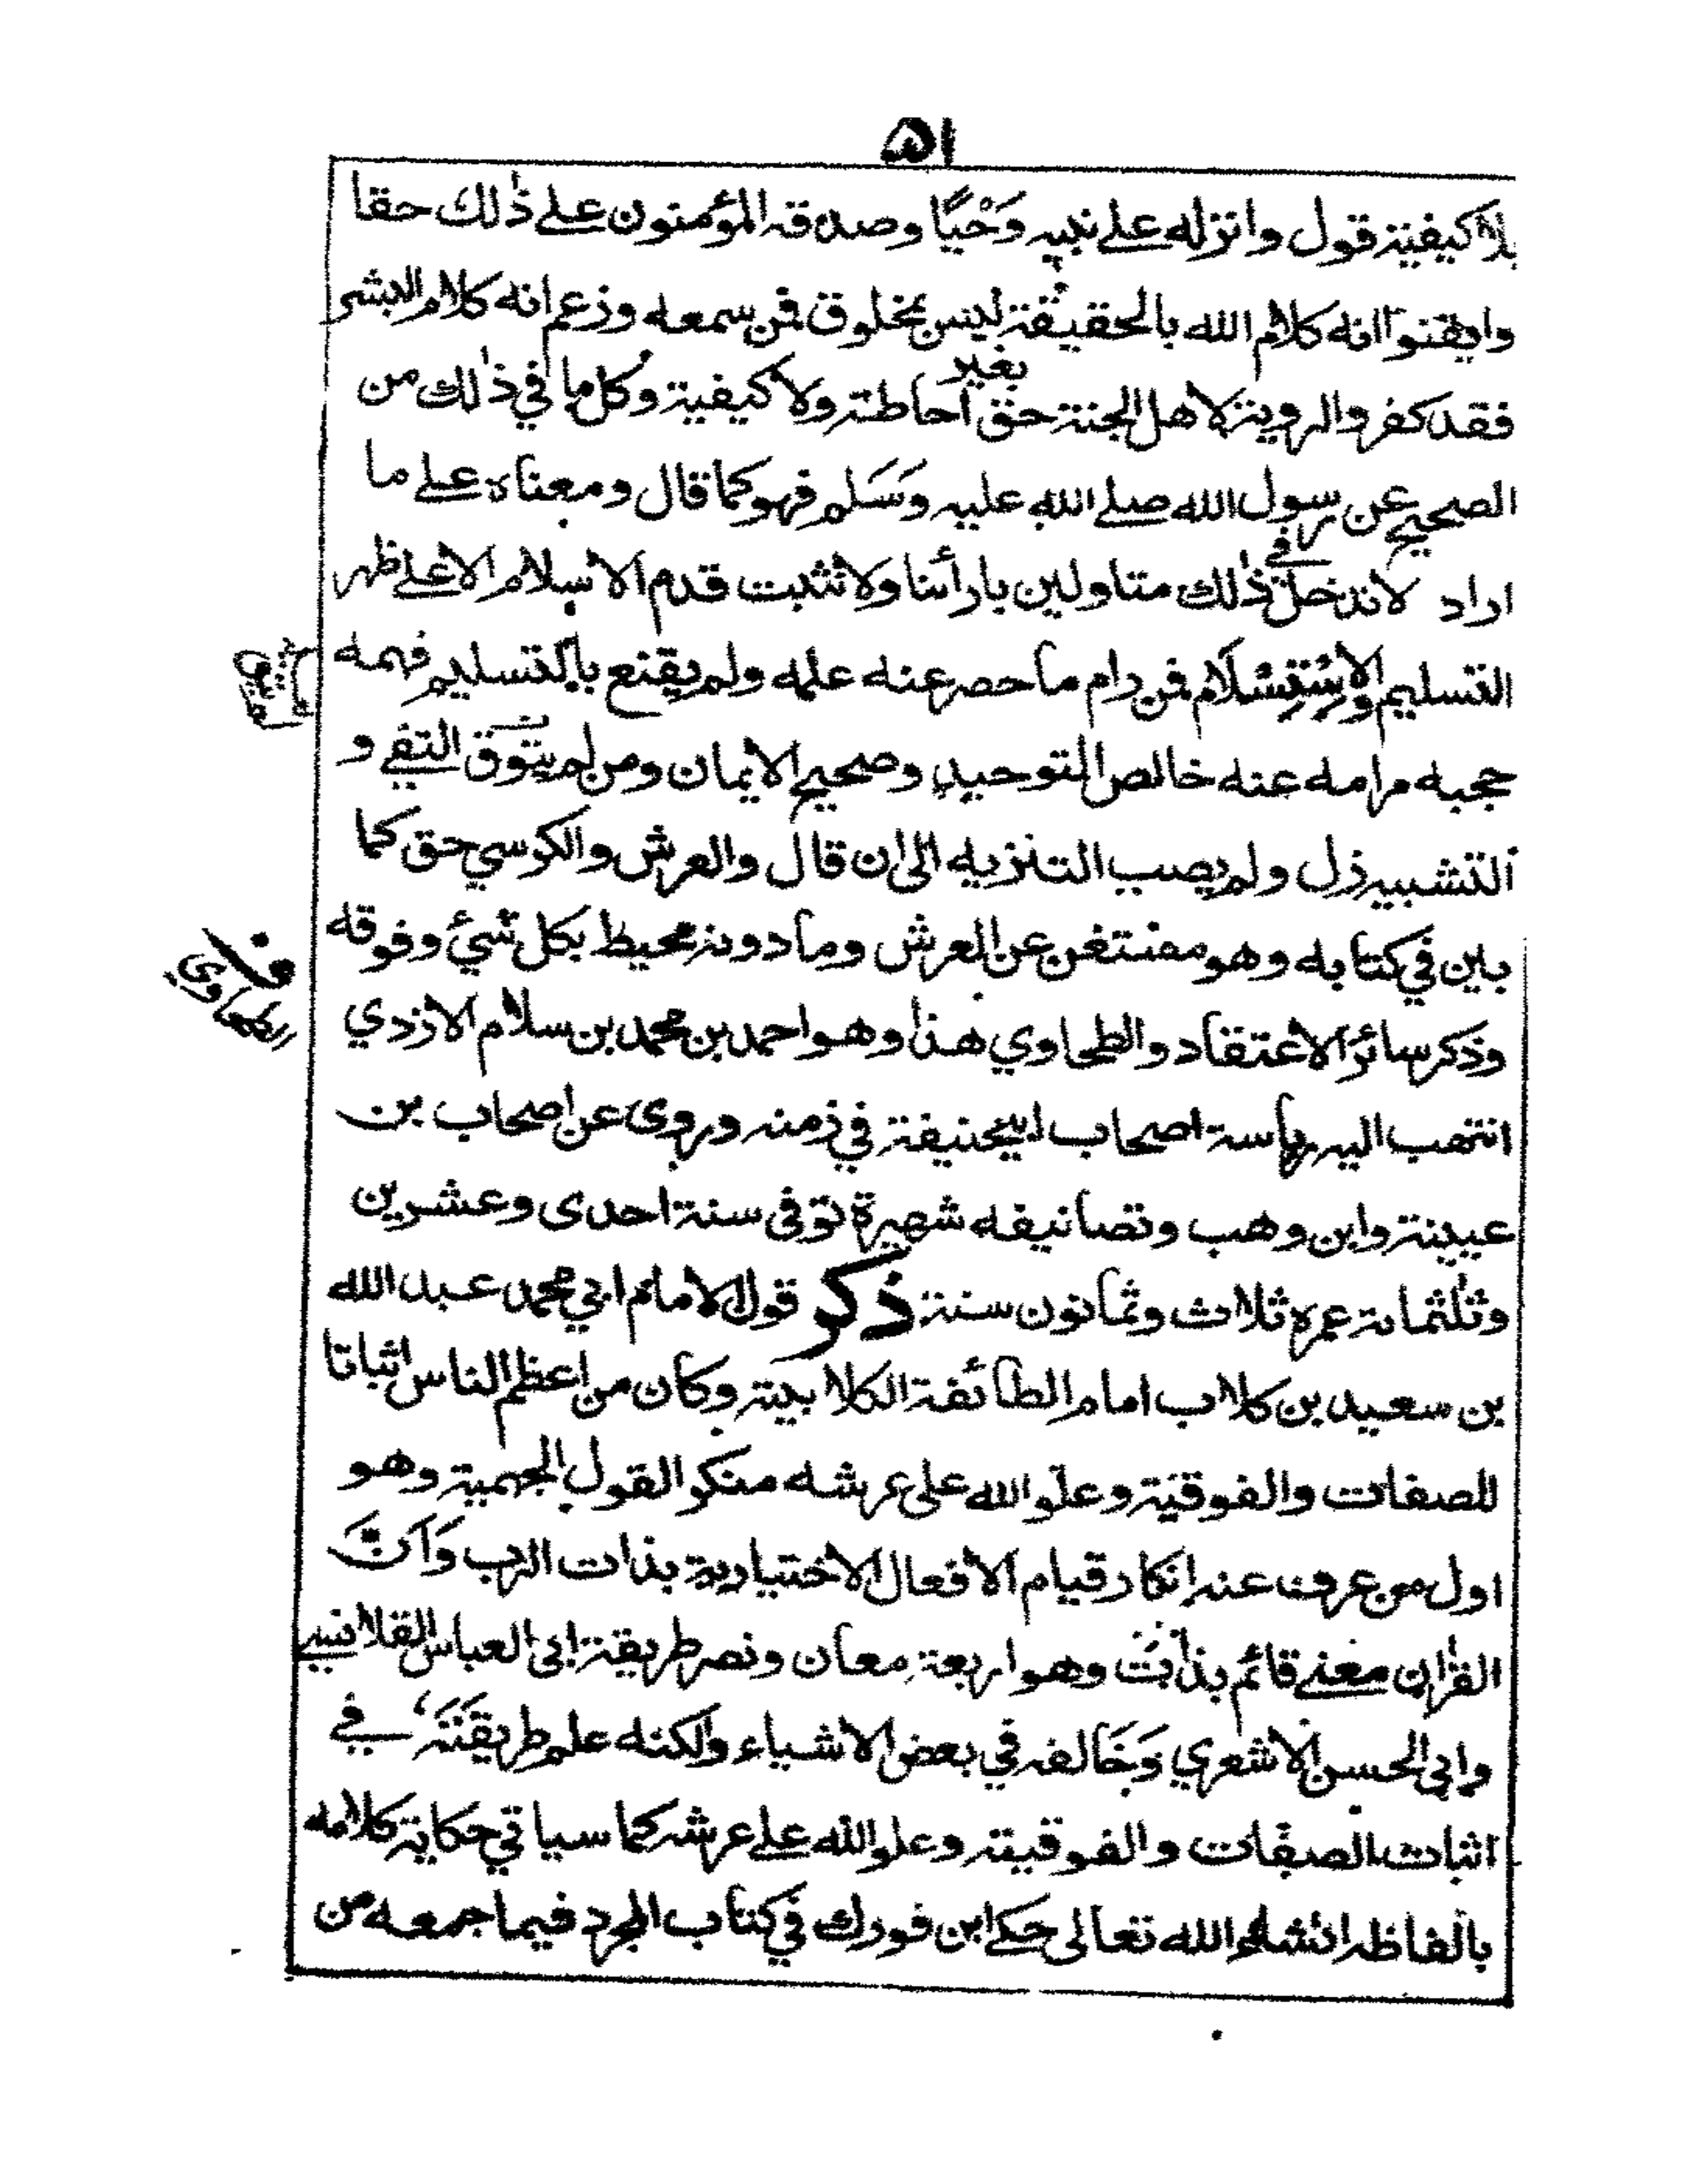 ٥١
بلا كيفية قول وانزله علے نبيه وَحْيًا وصدقه المؤمنون علے ذٰلك حقا
وايقنوا انه كلام الله بالحقيقة ليس بمخلوق فمن سمعه وزعم انه كلام البشر
فقد كفر والروية لاهل الجنة حق بغير احاطة ولا كيفية وكل ما في ذٰلك من
الصحيح عن رسول الله صلے الله عليه وَسَلم فهو كما قال ومعناه علے ما
اراد لا ندخل في ذٰلك متاولين بارأئنا ولا تثبت قدم الاسلام الا علے ظهر
التسليم والاسْتِسْلَام فمن رام ما حصر عنه علمه ولم يقنع بالتسليم فهمه
حجبه مرامه عنه خالص التوحيد وصحيح الايمان ومن لم يتوق النفے و
التشبيه زل ولم يصب التنزيه الى ان قال والعرش والكرسي حق كما
بين في كتابه وهو مستغن عن العرش وما دونه محيط بكل شئ وفوقه
وذكر سائر الاعتقاد والطحاوي هذا وهو احمد بن محمد بن سلام الازدي
انتهت اليه رياسة اصحاب ابيحنيفة في زمنه وروى عن اصحاب بن
عيينة وابن وهب وتصانيفه شهيرة توفى سنة احدى وعشرين
وثلثمائة عمره ثلاث وثمانون سنة ذكر قول الامام ابي محمد عبد الله
بن سعيد بن كلاب امام الطائفة الكلابية وكان من اعظم الناس اثباتا
للصفات والفوقية وعلو الله على عرشه منكر القول الجهمية وهو
اول من عرف عنه انكار قيام الافعال الاختيارية بذات الرب وَاَنَّ
القرٰان معنے قائم بذات وهو اربعة معان ونصر طريقة ابى العباس القلانسے
وابى الحسن الاشعري وَخَالفه في بعض الاشياء ولكنه علے طريقَتَه في
اثبات الصفات والفوقية وعلو الله علے عرشه كما سياتي حكاية كلامه
بالفاظه انشاء الله تعالى حكے ابن فورك في كتاب المجرد فيما جمعه من
الطحاوي